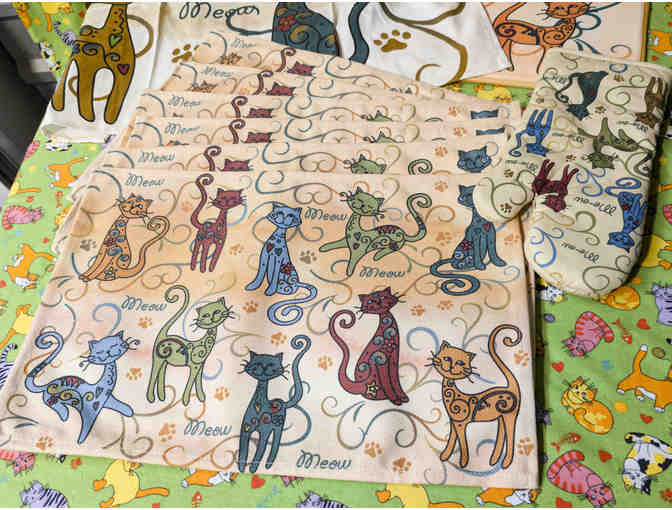 Meow
Meow
Meow
Meow
Meow
Meow
Meow
Meow
Meow
me-ow
me-ow
me-ow